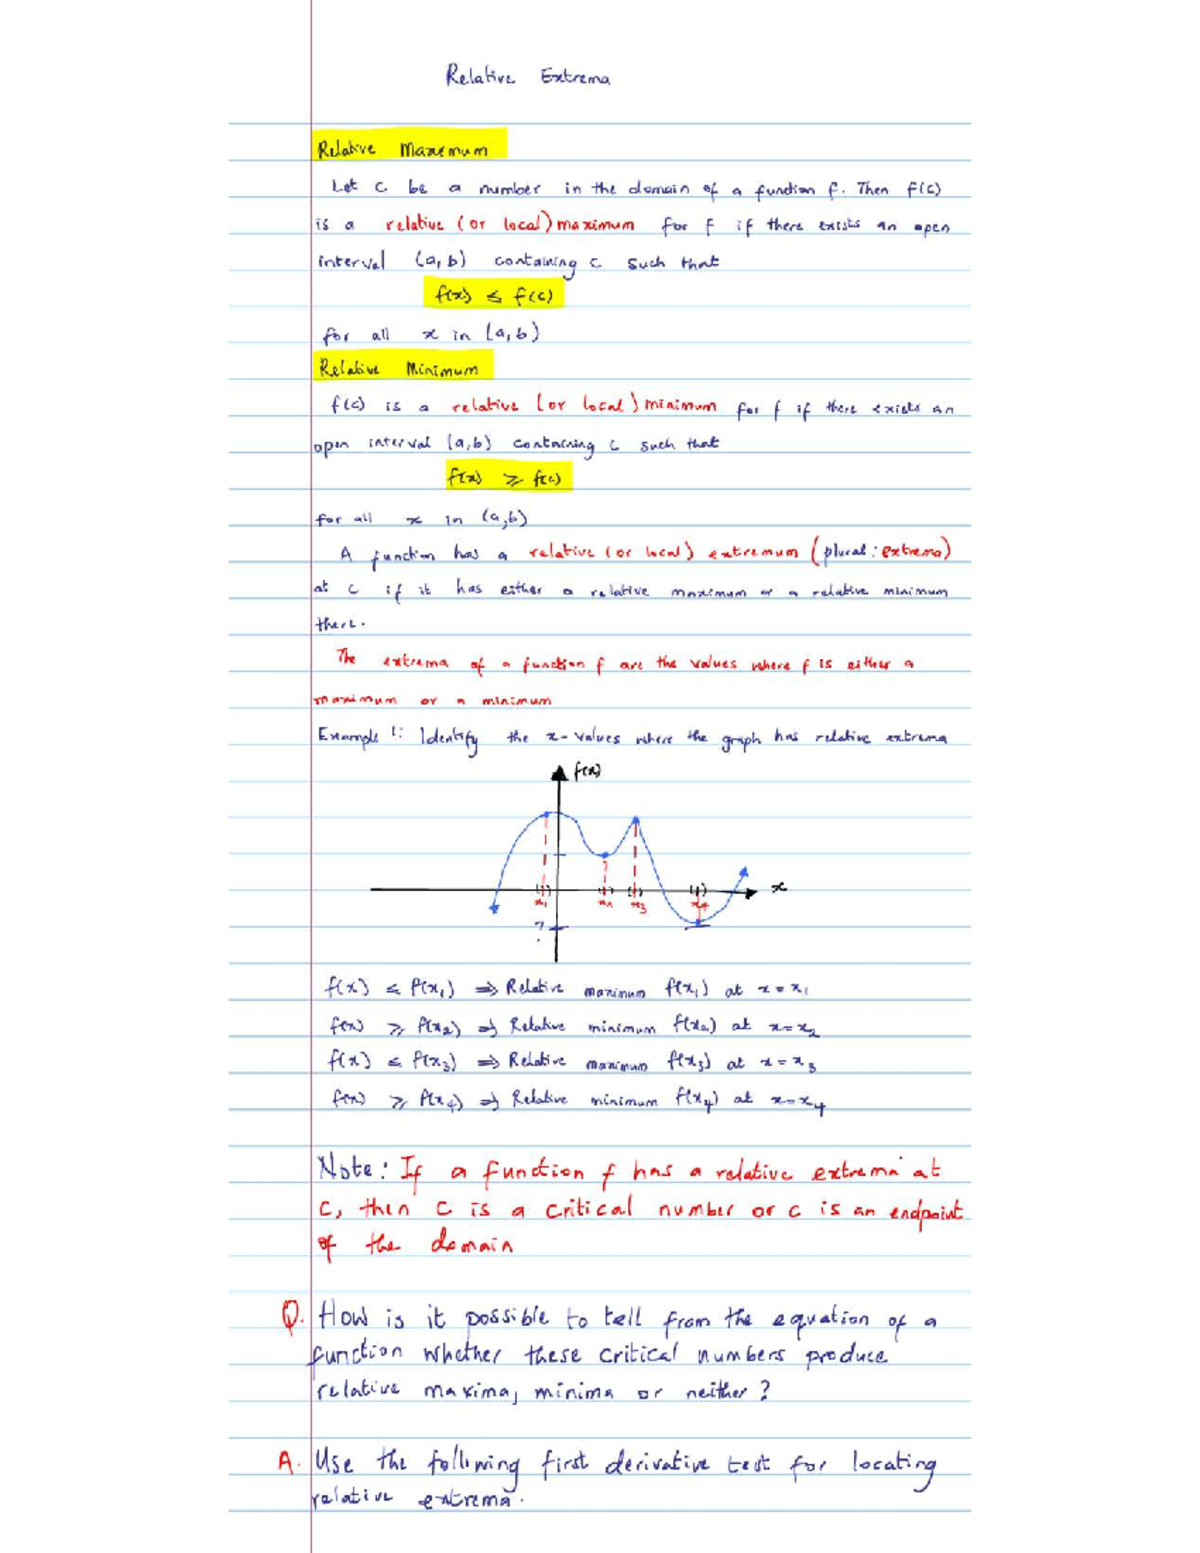 Relative Extrema
Relative Maximum
Let c be a number in the domain of a function f. Then f(c)
is a relative (or local) maximum for f if there exists an open
interval (a,b) containing c such that
f(x) ≤ f(c)
for all x in (a,b)
Relative Minimum
f(c) is a relative (or local) minimum for f if there exists an
open interval (a,b) containing c such that
f(x) ≥ f(c)
for all x in (a,b)
A function has a relative (or local) extremum (plural: extrema)
at c if it has either a relative maximum or a relative minimum
there.
The extrema of a function f are the values where f is either a
maximum or a minimum
Example 1: Identify the x-values where the graph has relative extrema
f(x)
x
x₁ x₂ x₃ x₄
?
f(x) ≤ f(x₁) ⇒ Relative maximum f(x₁) at x = x₁
f(x) ≥ f(x₂) ⇒ Relative minimum f(x₂) at x = x₂
f(x) ≤ f(x₃) ⇒ Relative maximum f(x₃) at x = x₃
f(x) ≥ f(x₄) ⇒ Relative minimum f(x₄) at x = x₄
Note: If a function f has a relative extrema at
c, then c is a critical number or c is an endpoint
of the domain
Q. How is it possible to tell from the equation of a
function whether these critical numbers produce
relative maxima, minima or neither?
A. Use the following first derivative test for locating
relative extrema.